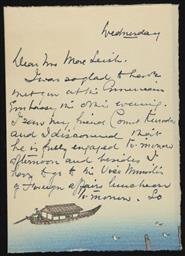 Wednesday
Dear Mrs More Leich.
I was so glad to have
met you at the American
Embassy the other evening.
I saw my friend Count
and I discovered that
he is fully engaged to-morrow
afternoon and besides I
have to go to the Vice Minister
of Foreign affairs luncheon
to-morrow. So